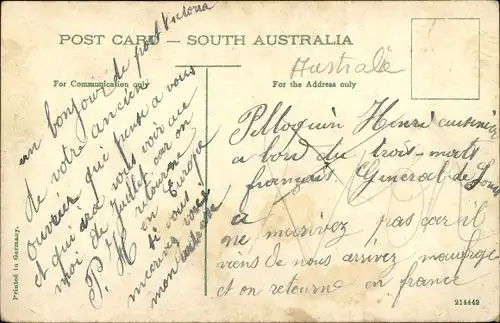 POST CARD – SOUTH AUSTRALIA
For Communication only
For the Address only
Australë
un bonjour de port Victoria
de votre ancien
ouvrier qui pense a vous
et qui ira vous voir au
moi de Juillet car on
P. H retourne
en Europe
si vous
mecrivez voici
mon adresse
Pelloquin Henri cuisinier
a bord du trois-mats
français Général de Sonis
a
ne mecrivez pas car il
viens de nous arrivez naufrage
et on retourne en france
Printed in Germany.
214449